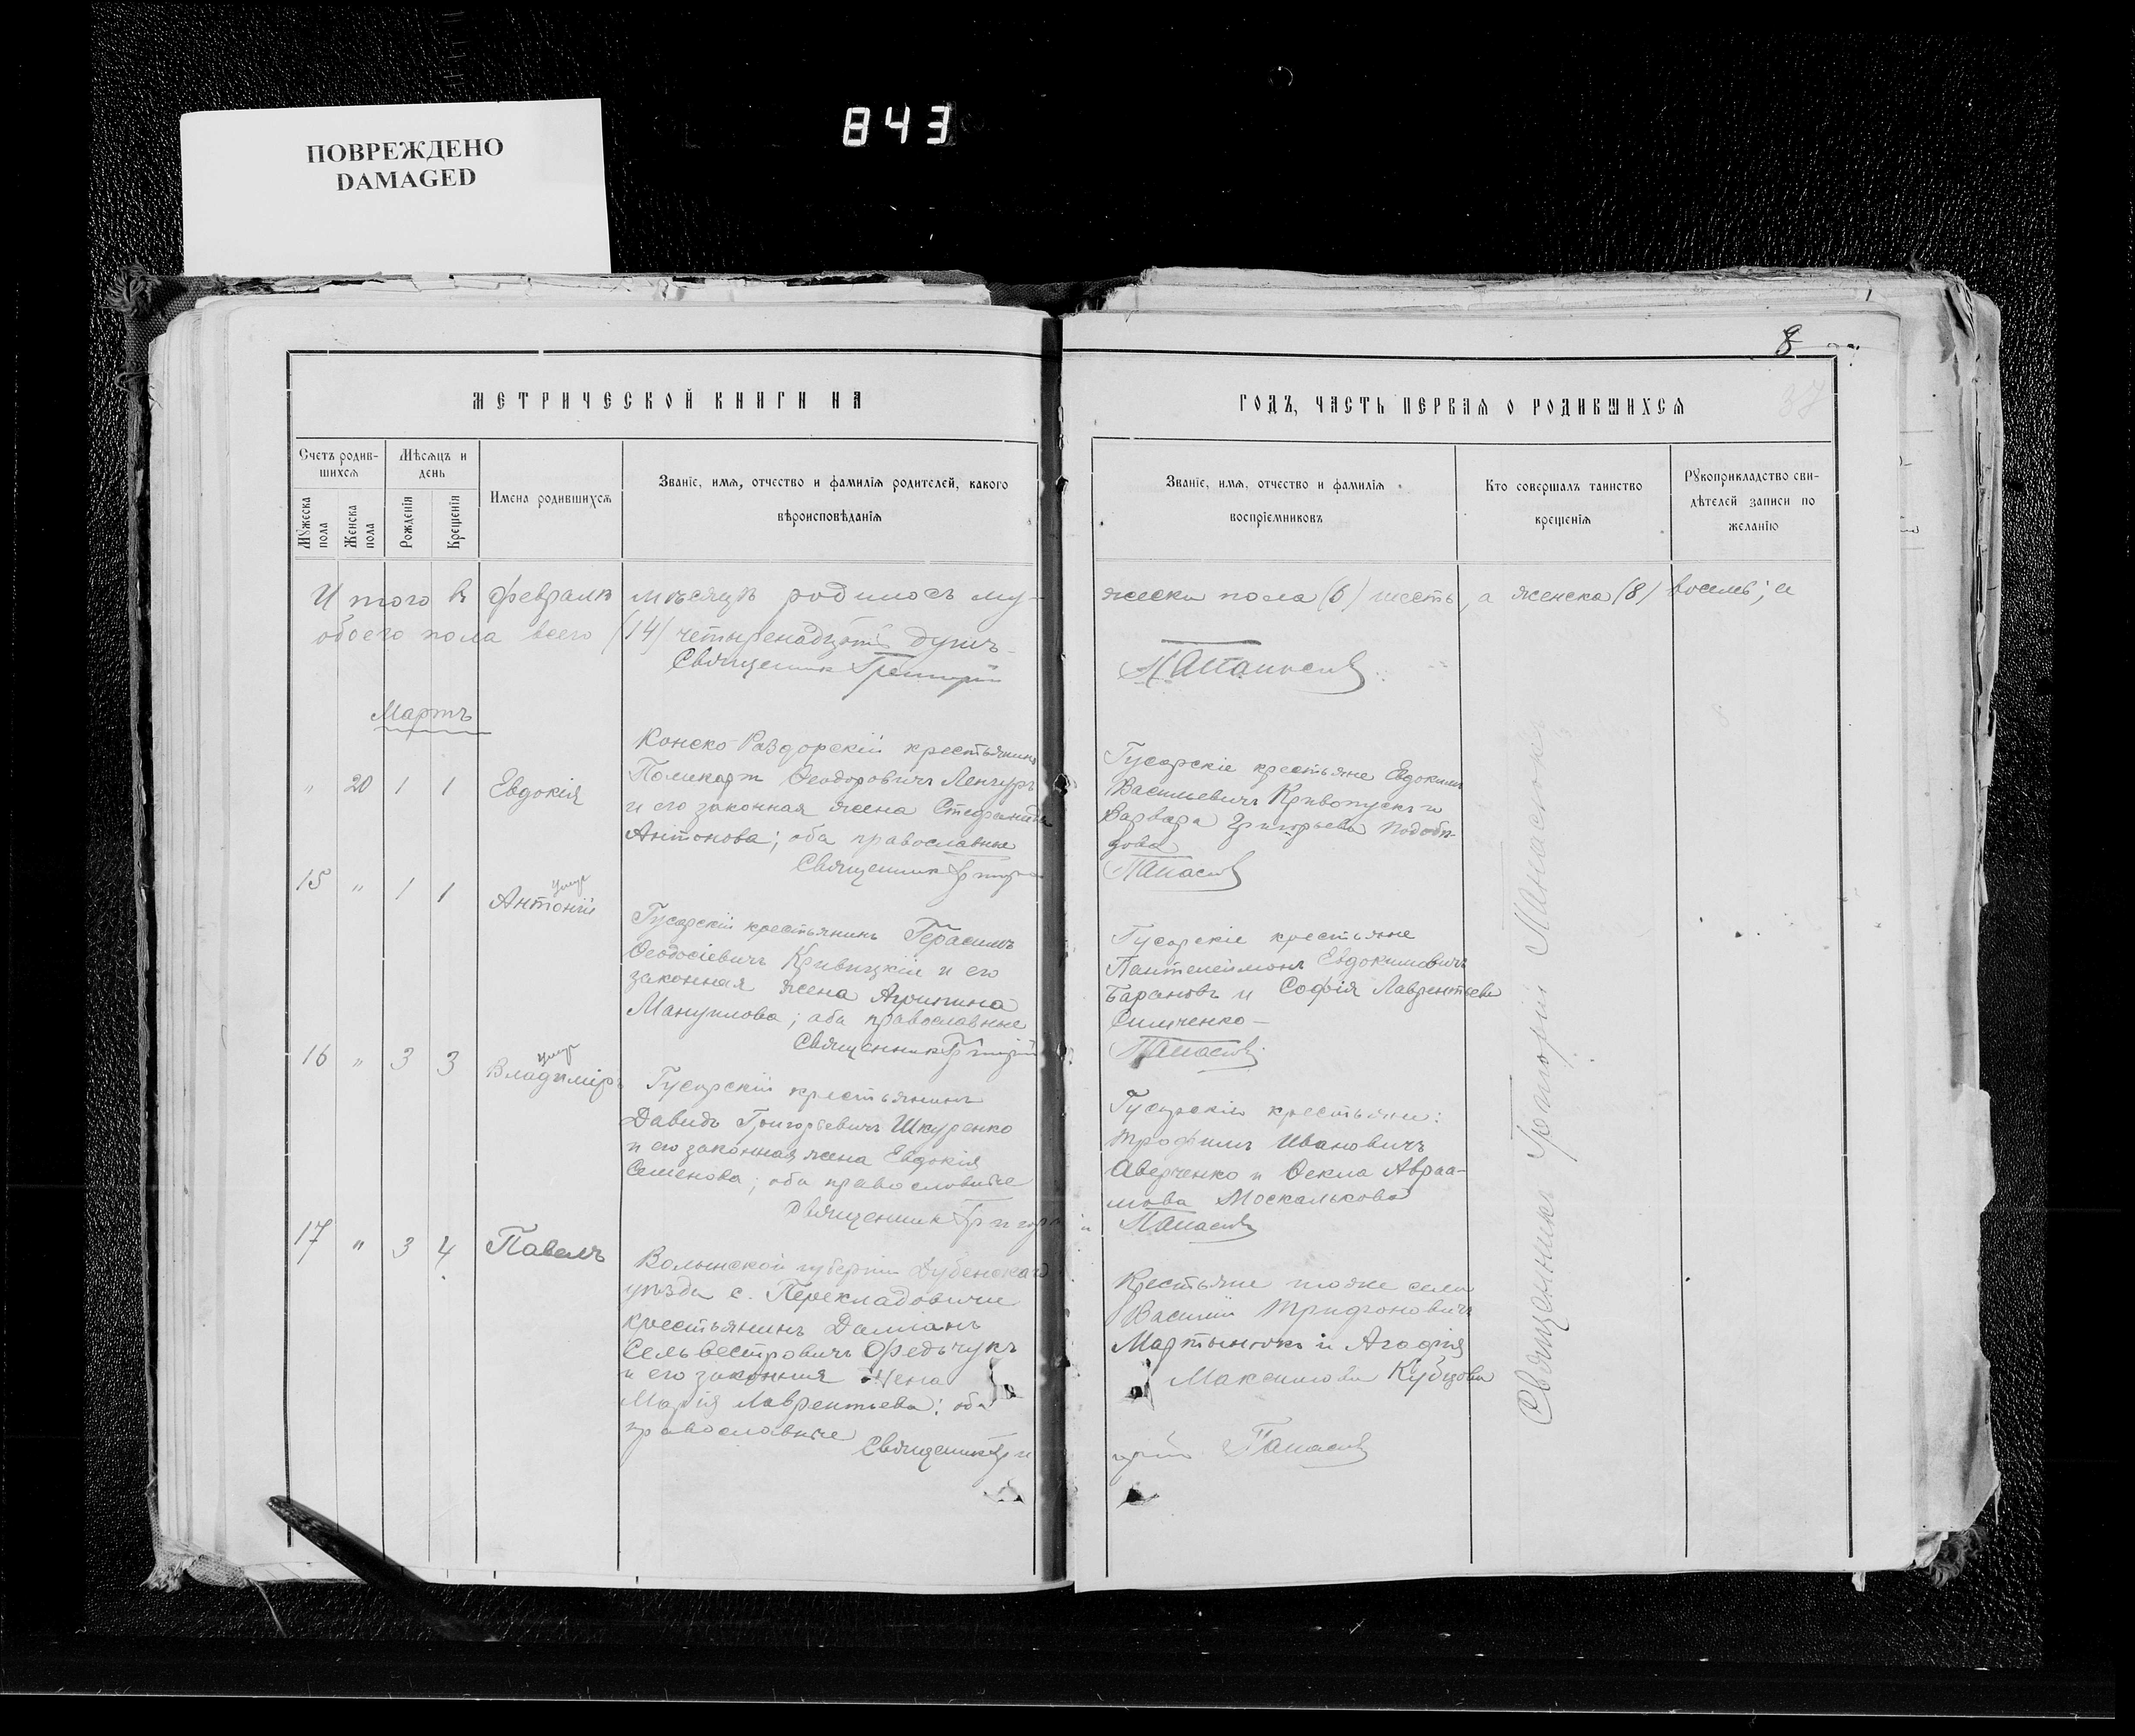 843
ПОВРЕЖДЕНО
DAMAGED
8
37
МЕТРИЧЕСКОЙ КНИГИ НА
ГОДЪ, ЧАСТЬ ПЕРВАЯ О РОДИВШИХСЯ
Счетъ родив-
шихся
Мѣсяцъ и
день
Мужеска
пола
Женска
пола
Рожденія
Крещенія
Имена родившихся
Званіе, имя, отчество и фамилія родителей, какого
вѣроисповѣданія
Званіе, имя, отчество и фамилія
воспріемниковъ
Кто совершалъ таинство
крещенія
Рукоприкладство сви-
дѣтелей записи по
желанію
Итого въ февралѣ мѣсяцѣ родилось му-
жеска пола (6) шесть, а женска (8) восемь; а
обоего пола всего (14) четыренадцать душъ.
Священник Григорій
Панасов
Мартъ
" 20 1 1 Евдокія
Конско-Раздорскій крестьянинъ
Поликарп Ѳеодоровичъ Ленчуръ
и его законная жена Стефанида
Антонова; оба православные
Священник Григорій
Гусарскіе крестьяне Евдоким
Васильевичъ Кривопускъ и
Варвара Григорьева
Панасов
15 " 1 1 Антоній
умер
Гусарскій крестьянинъ Герасимъ
Ѳеодосіевичъ Кривицкій и его
законная жена Агрипина
Мануилова; оба православные
Священник Григорій
Гусарскіе крестьяне
Пантелеймонъ Евдокимовичъ
Барановъ и Софія Лаврентьева
Симченко
Панасов
16 " 3 3 Владиміръ
умер
Гусарскій крестьянинъ
Давидъ Григорьевичъ Шкуренко
и его законная жена Евдокія
Семенова; оба православные
Священник Григорій
Гусарскіе крестьяне:
Трофимъ Ивановичъ
Аверченко и Ѳекла Авраа-
мова Москалькова
Панасов
17 " 3 4 Павелъ
Волынской губерніи Дубенскаго
уѣзда с. Перекладовичи
крестьянинъ Даміанъ
Сельвестровичъ Федьчукъ
и его законная жена
Марія Лаврентьева; оба
православные
Священник Гри
Крестьяне того же села
Василій Трифоновичъ
Мартынюкъ и Агафія
Максимова Кубцова
горій Панасов
Священникъ Григорій Панасовъ